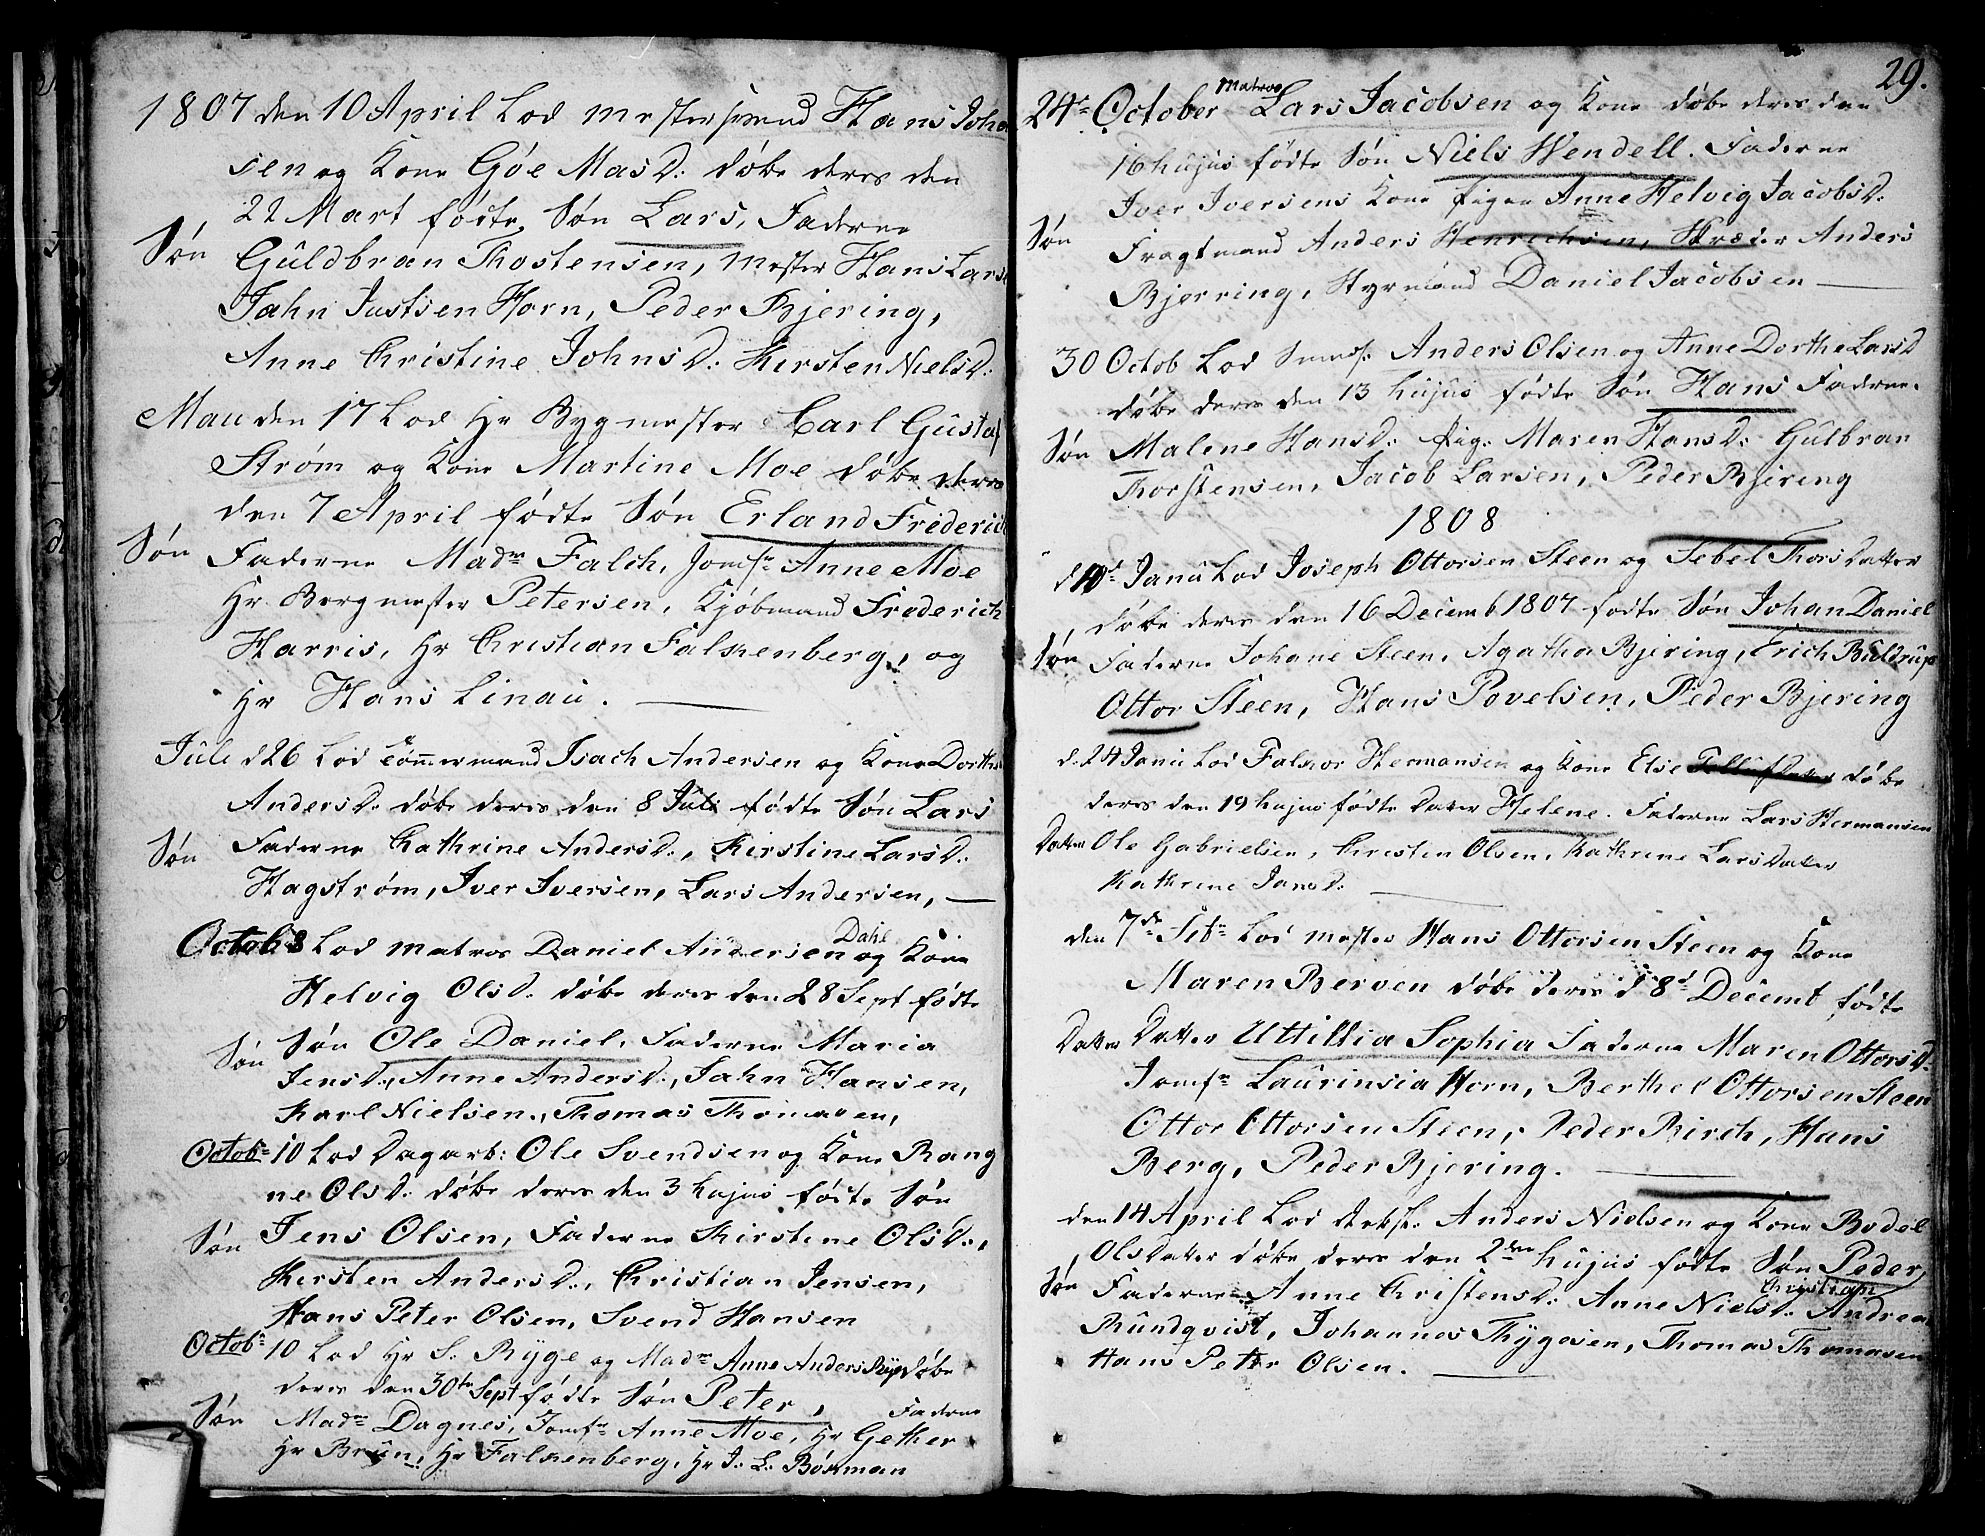 1807 den 10 April Lod Mestersvend Hans Joha
sen og Kone Góe MasD: døbe deres den
22 Mart fødte Søn Lars, Faderne
Søn Guldbran Thostensen, Mester Hans Lars
Jahn Justsen Horn, Peder Bjering,
Anne Christine JohnsD: Kirsten NielsD:
Mau den 17 Lod Hr Bygmester Carl Gustaf
Strøm og Kone Martine Moe døbe deres
den 7 April fødte Søn Erland Friderich
Søn Faderne Madm Falch, Jomfr Anne Moe
Hr Borgmester Petersen, Kjøbmand Frederich
Harris, Hr Christian Falkenberg, og
Hr Hans Linau.
Juli d 26 Lod Tømmermand Isach Andersen og Kone Dorthe
AndersD: døbe deres den 8 Juli fødte Søn Lars
Søn Faderne Cathrine AndersD:, Kirstine LarsD:
Hagstrøm, Iver Iversen, Lars Andersen,
Octob 8 Lod Matros Daniel Andersen Dahl og Kone
Helvig OlsD: døbe deres den 28 Sept fødte
Søn Søn Ole Daniel, Faderne Maria
JensD:, Anne AndersD:, Jahn Hansen,
Karl Nielsen, Thomas Thomasen,
Octobr 10 Lod Dagarb: Ole Svendsen og Kone Rang
ne OlsD: døbe deres den 3 hujus fødte Søn
Søn Jens Olsen, Faderne Kirstene OlsD:,
Kersten AndersD:, Christian Jensen,
Hans Peter Olsen, Svend Hansen
Octobr 10 Lod Hr S: Ryge og Madm Anne Anders Ryge døbe
deres den 30te Sept fødte Søn Peter, Faderne
Søn Madm Dagnes, Jomfr Anne Moe, Hr Gether
Hr Brun, Hr Falkenberg, Hr J: L: Bøkman
29.
24de October Matros Lars Jacobsen og Kone døbe deres den
16 hujus fødte Søn Niels Wendell. Faderne
Iver Iversens Kone Pigen Anne Helvig JacobsD:
Søn Fragtmand Anders Henrichsen, Skræder Anders
Bjerring, Styrmand Daniel Jacobsen
30 Octob Lod Anders Olsen og Anne Dorthe LarsD
døbe deres den 13 hujus fødte Søn Hans Faderne
Søn Malene HansD: Pig: Maren HansD: Gulbran
Thorstensen, Jacob Larsen, Peder Bjering
1808
d 10de Janu Lod Joseph Ottorsen Steen og Sebel Thors Datter
døbe deres den 16 Decemb 1807 fødte Søn Johan Daniel
Søn Faderne Johane Steen, Agatha Bjering, Erich Buldrup
Ottor Steen, Hans Povelsen, Peder Bjering
d. 24 Janu Lod Falkor Hermansen og Kone Else døbe
deres den 19 hujus fødte Datter Helene. Faderne Lars Hermansen
Datter Ole Gabrielsen, Christen Olsen, Kathrene Lars Datter
Kathrene JansD:
den 7de Febr Lod Mester Hans Ottorsen Steen og Kone
Maren Berven døbe deres d 8d Decemb fødte
Datter Datter Uttillia Sophia Faderne Maren OttorsD:
Jomfr Laurinsia Horn, Berthel Ottorsen Steen
Ottor Ottorsen Steen, Peder Birch, Hans
Berg, Peder Bjering.
den 14 April Lod Anders Nielsen og Kone Bodel
Ols Datter døbe deres den 2den hujus fødte Søn Peder Christian
Søn Faderne Anne ChristensD: Anne NielsD: Andrea
Rundqvist, Johannes Thygesen, Thomas Thomasen
Hans Peter Olsen.